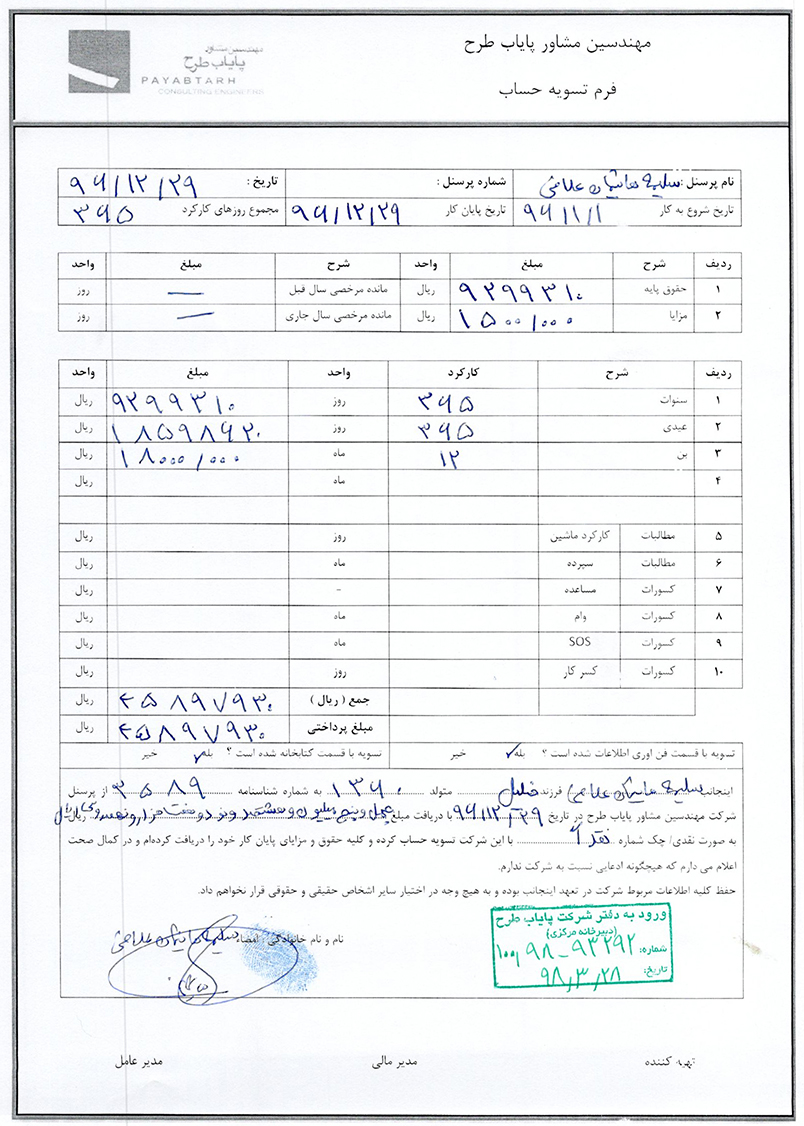 مهندسین مشاور پایاب طرح
فرم تسویه حساب
مهندسین مشاور
پایاب طرح
PAYABTARH
CONSULTING ENGINEERS
نام پرسنل: شماره پرسنل: تاریخ: ۹۶/۱۲/۲۹
تاریخ شروع به کار ۹۶/۱/۱ تاریخ پایان کار ۹۶/۱۲/۲۹ مجموع روزهای کارکرد ۳۶۵
ردیف شرح مبلغ واحد شرح مبلغ واحد
۱ حقوق پایه ۹۲۹۹۳۱۰ ریال مانده مرخصی سال قبل — روز
۲ مزایا ۱۵۰۰/۰۰۰ ریال مانده مرخصی سال جاری — روز
ردیف شرح کارکرد واحد مبلغ واحد
۱ سنوات ۳۶۵ روز ۹۲۹۹۳۱۰ ریال
۲ عیدی ۳۶۵ روز ۱۸۵۹۸۶۲۰ ریال
۳ بن ۱۲ ماه ۱۸۰۰۰/۰۰۰ ریال
۴ ماه ریال
۵ مطالبات کارکرد ماشین روز ریال
۶ مطالبات سپرده ماه ریال
۷ کسورات مساعده - ریال
۸ کسورات وام ماه ریال
۹ کسورات SOS ماه ریال
۱۰ کسورات کسر کار روز ریال
جمع (ریال) ۴۵۸۹۷۹۳۰ ریال
مبلغ پرداختی ۴۵۸۹۷۹۳۰ ریال
تسویه با قسمت فن اوری اطلاعات شده است ؟ بله ✓ خیر تسویه با قسمت کتابخانه شده است ؟ بله ✓ خیر
اینجانب فرزند خلیل متولد ۱۳۶۰ به شماره شناسنامه ۳۵۸۹ از پرسنل
شرکت مهندسین مشاور پایاب طرح در تاریخ ۹۶/۱۲/۲۹ با دریافت مبلغ چهل و پنج میلیون و هشتصد و نود و هفت هزار و نهصد و سی ریال ریال
به صورت نقدی/ چک شماره نقداً با این شرکت تسویه حساب کرده و کلیه حقوق و مزایای پایان کار خود را دریافت کرده‌ام و در کمال صحت
اعلام می دارم که هیچگونه ادعایی نسبت به شرکت ندارم.
حفظ کلیه اطلاعات مربوط شرکت در تعهد اینجانب بوده و به هیچ وجه در اختیار سایر اشخاص حقیقی و حقوقی قرار نخواهم داد.
نام و نام خانوادگی : امضاء
ورود به دفتر شرکت پایاب طرح
(دبیرخانه مرکزی)
شماره: ۹۸-۹۳۲۹۲
تاریخ: ۹۸/۳/۲۸
تهیه کننده مدیر مالی مدیر عامل